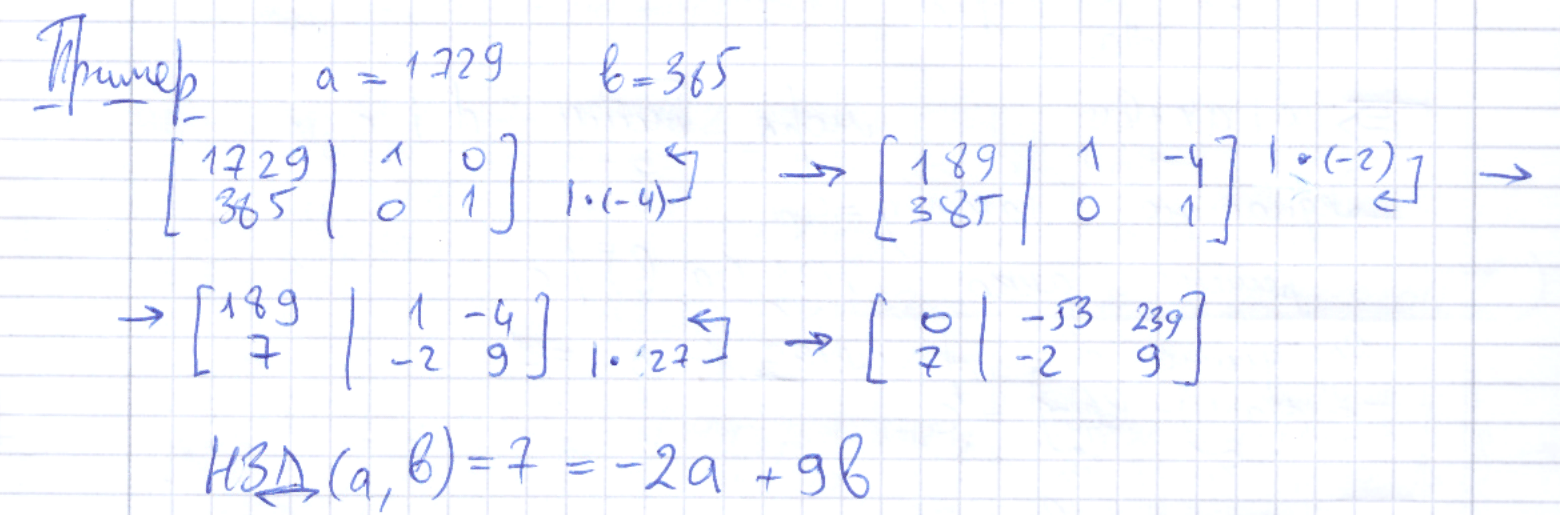 Пример a = 1729 b = 385
[1729 | 1 0] ↰
[385 | 0 1] |·(-4) → [189 | 1 -4] |·(-2) →
[385 | 0 1] ↵
→ [189 | 1 -4] ↰
[7 | -2 9] |· 27 → [0 | -53 239]
[7 | -2 9]
НЗД (a, b) = 7 = -2a + 9b